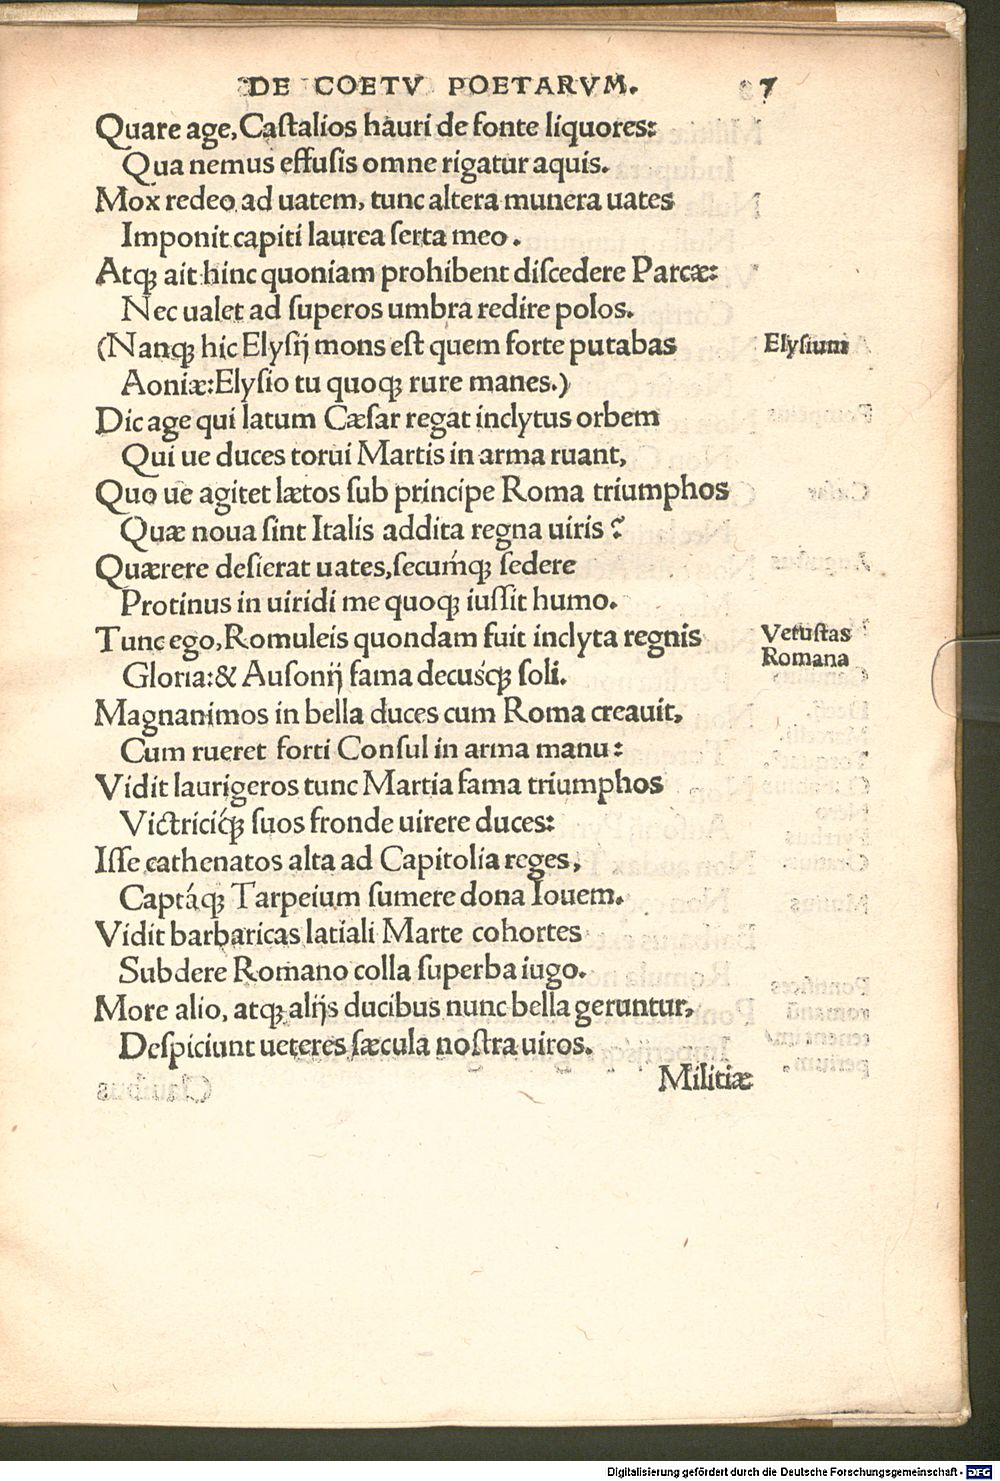 DE COETV POETARVM. 7
Quare age, Castalios hauri de fonte liquores:
Qua nemus effusis omne rigatur aquis.
Mox redeo ad uatem, tunc altera munera uates
Imponit capiti laurea serta meo.
Atq; ait hinc quoniam prohibent discedere Parcæ:
Nec ualet ad superos umbra redire polos.
(Nanq; hic Elysij mons est quem forte putabas
Elysium
Aoniæ: Elysio tu quoq; rure manes.)
Dic age qui latum Cæsar regat inclytus orbem
Qui ue duces torui Martis in arma ruant,
Quo ue agitet lætos sub principe Roma triumphos
Quæ noua sint Italis addita regna uiris?
Quærere desierat uates, secumq́; sedere
Protinus in uiridi me quoq; iussit humo.
Tunc ego, Romuleis quondam fuit inclyta regnis
Vetustas
Romana
Gloria: & Ausonij fama decusq́; soli.
Magnanimos in bella duces cum Roma creauit,
Cum rueret forti Consul in arma manu:
Vidit laurigeros tunc Martia fama triumphos
Victriciq́; suos fronde uirere duces:
Isse cathenatos alta ad Capitolia reges,
Captáq; Tarpeium sumere dona Iouem.
Vidit barbaricas latiali Marte cohortes
Subdere Romano colla superba iugo.
More alio, atq; alijs ducibus nunc bella geruntur,
Despiciunt ueteres sæcula nostra uiros.
Militiæ
Digitalisierung gefördert durch die Deutsche Forschungsgemeinschaft - DFG